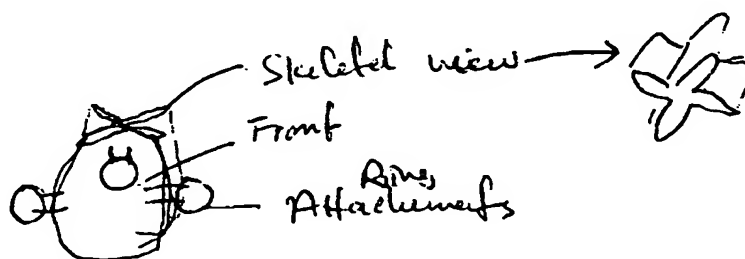 Skeletal view
Front
Rings
Attachments